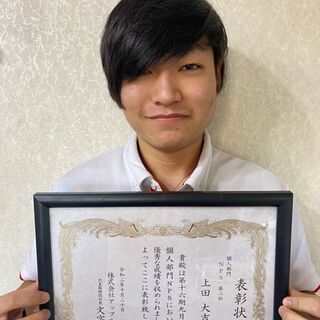 表彰状
個人部門
NPS 第二位
上田 大
貴殿は第十六期九月
個人部門NPSにおい
優秀な成績を収められま
よってここに表彰致し
令和二年十月
株式会社アップ